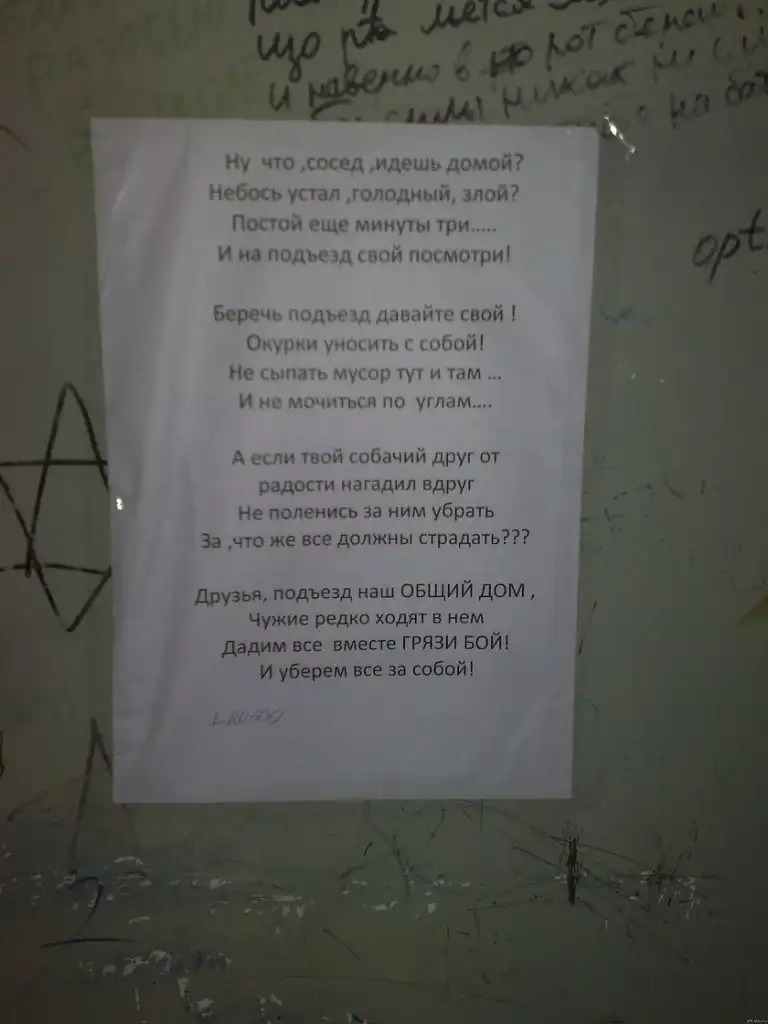 що
и навенно в рот
никак
на
opt
Ну что ,сосед ,идешь домой?
Небось устал ,голодный, злой?
Постой еще минуты три.....
И на подъезд свой посмотри!
Беречь подъезд давайте свой !
Окурки уносить с собой!
Не сыпать мусор тут и там ...
И не мочиться по углам....
А если твой собачий друг от
радости нагадил вдруг
Не поленись за ним убрать
За ,что же все должны страдать???
Друзья, подъезд наш ОБЩИЙ ДОМ ,
Чужие редко ходят в нем
Дадим все вместе ГРЯЗИ БОЙ!
И уберем все за собой!